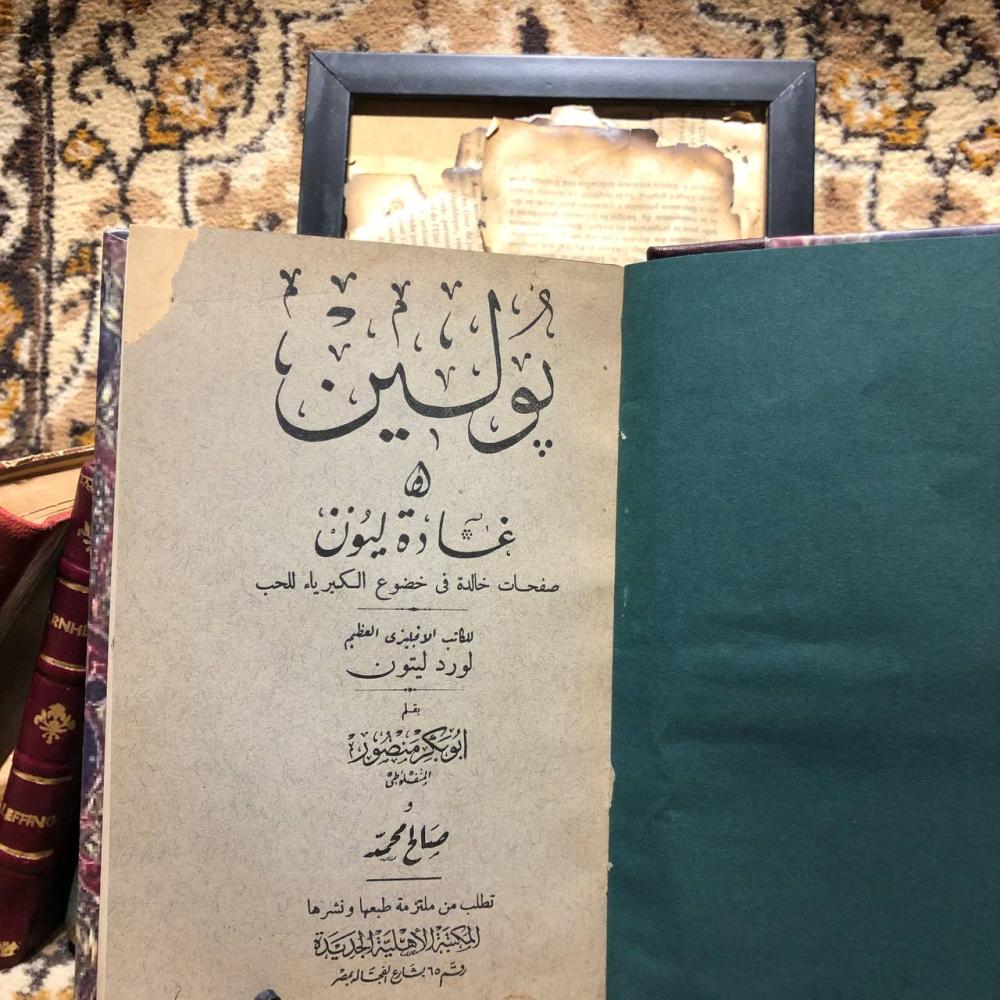 پُولين
أو
غادة ليُون
صفحات خالدة فى خضوع الكبرياء للحب
للكاتب الانجليزى العظيم
لورد ليتون
بقلم
أبو بكر منصور
المنفلوطى
و
صالح محمد
تطلب من ملتزمة طبعها ونشرها
المكتبة الأهلية الجديدة
رقم ٦٥ بشارع الفجالة بمصر